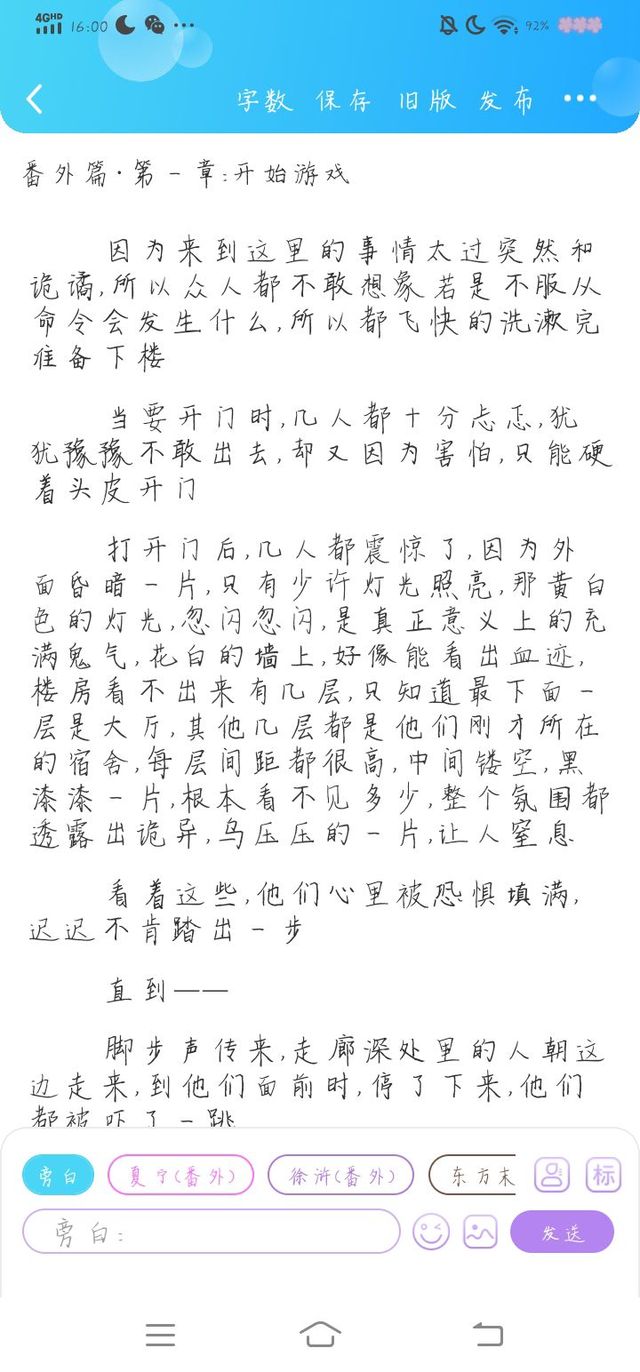 4GHD 16:00 92%
字数 保存 旧版 发布
番外篇·第一章:开始游戏
因为来到这里的事情太过突然和
诡谲,所以众人都不敢想象若是不服从
命令会发生什么,所以都飞快的洗漱完
准备下楼
当要开门时,几人都十分忐忑,犹
犹豫豫不敢出去,却又因为害怕,只能硬
着头皮开门
打开门后,几人都震惊了,因为外
面昏暗一片,只有少许灯光照亮,那黄白
色的灯光,忽闪忽闪,是真正意义上的充
满鬼气,花白的墙上,好像能看出血迹,
楼房看不出来有几层,只知道最下面一
层是大厅,其他几层都是他们刚才所在
的宿舍,每层间距都很高,中间镂空,黑
漆漆一片,根本看不见多少,整个氛围都
透露出诡异,乌压压的一片,让人窒息
看着这些,他们心里被恐惧填满,
迟迟不肯踏出一步
直到——
脚步声传来,走廊深处里的人朝这
边走来,到他们面前时,停了下来,他们
都被吓了一跳
旁白 夏宁(番外) 徐浒(番外) 东方末 标
旁白: 发送